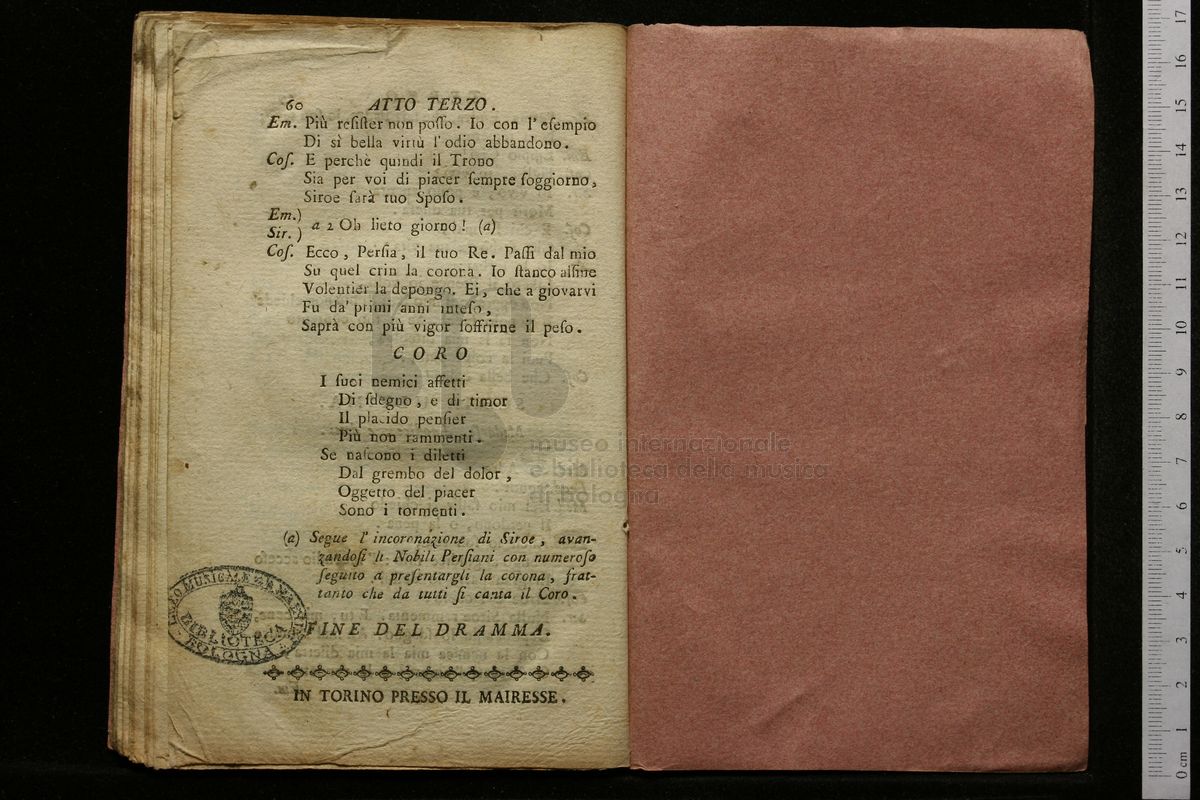 60 ATTO TERZO.
Em. Più reſiſter non poſſo. Io con l'eſempio
Di sì bella virtù l'odio abbandono.
Coſ. E perchè quindi il Trono
Sia per voi di piacer ſempre ſoggiorno,
Siroe ſarà tuo Spoſo.
Em.)
Sir.) a 2 Oh lieto giorno! (a)
Coſ. Ecco, Perſia, il tuo Re. Paſſi dal mio
Su quel crin la corona. Io ſtanco alfine
Volentier la depongo. Ei, che a giovarvi
Fu da' primi anni inteſo,
Saprà con più vigor ſoffrirne il peſo.
CORO
I ſuoi nemici affetti
Di ſdegno, e di timor
Il placido penſier
Più non rammenti.
Se naſcono i diletti
Dal grembo del dolor,
Oggetto del piacer
Sono i tormenti.
(a) Segue l'incoronazione di Siroe, avan-
zandoſi li Nobili Perſiani con numeroſo
ſeguito a preſentargli la corona, frat-
tanto che da tutti ſi canta il Coro.
FINE DEL DRAMMA.
IN TORINO PRESSO IL MAIRESSE.
BIBLIOTECA
BOLOGNA
museo internazionale
e biblioteca della musica
di bologna
0 cm 1 2 3 4 5 6 7 8 9 10 11 12 13 14 15 16 17